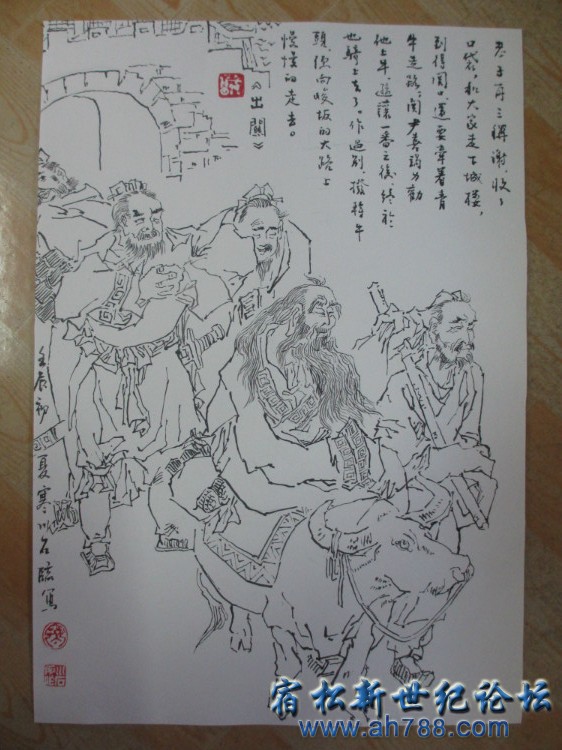 老子再三稱謝,收了
口袋,和大家走下城樓,
到得関口,還要牽着青
牛走路,関尹喜竭力勸
他上牛,遜讓一番之後,終於
也騎上去了。作過別,撥轉牛
頭,便向峻坂的大路上
慢慢的走去。
《出關》
壬辰初夏寒川石臨寫
宿松新世纪论坛
www.ah788.com